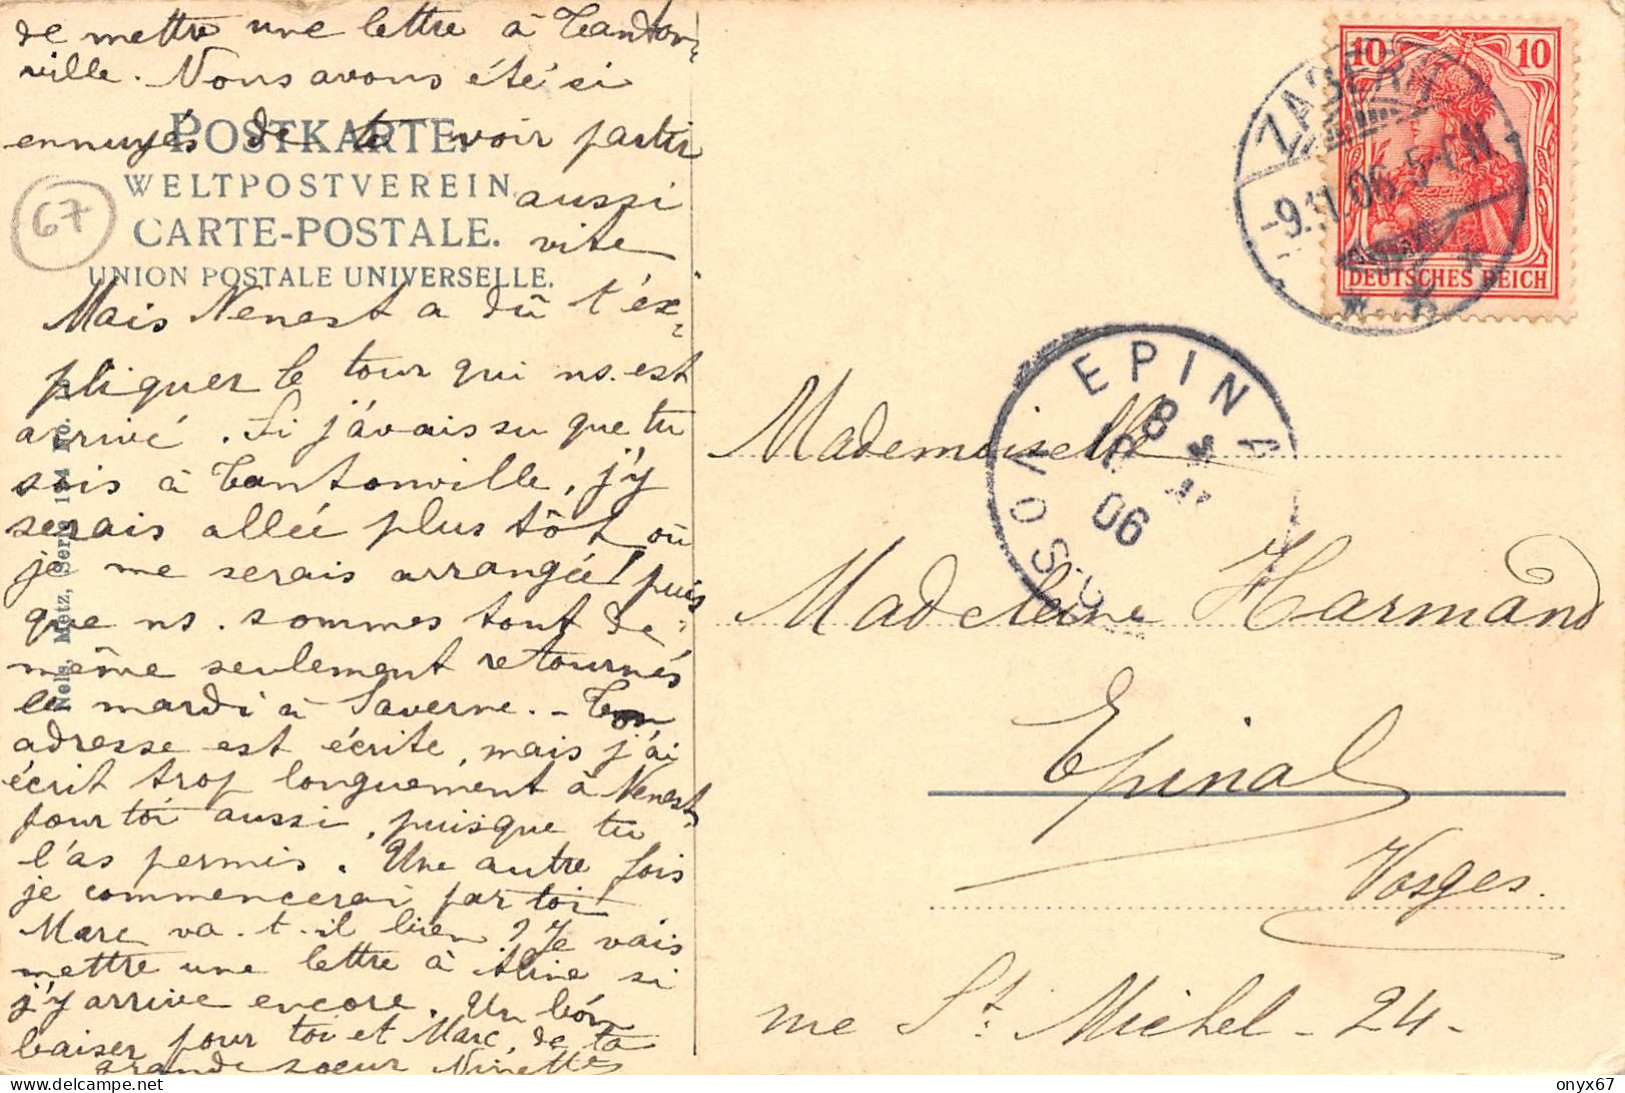 de mettre une lettre à Tanton-
ville. Nous avons été si
ennuyés de te voir partir
aussi
vite
POSTKARTE.
WELTPOSTVEREIN.
CARTE-POSTALE.
UNION POSTALE UNIVERSELLE.
67
Mais Nenest a dû t'ex-
pliquer le tour qui ns. est
arrivé. Si j'avais su que tu
sois à Tantonville, j'y
serais allée plus tôt où
je me serais arrangée! puis
que ns. sommes tout de-
même seulement retournés
le mardi à Saverne. - Ton
adresse est écrite, mais j'ai
écrit trop longuement à Nenest,
pour toi aussi, puisque tu
l'as permis. Une autre fois
je commencerai par toi
Marc va-t-il bien? Je vais
mettre une lettre à Aline si
j'y arrive encore. Un bon
baiser pour toi et Marc, de ta
grande soeur Ninette
Nels, Metz, Serie 104 No.
10 10
DEUTSCHES REICH
ZABERN
-9.11.06.5-6N.
EPINAL
VOSGES
8
06
Mademoiselle
Madeleine Harmand
Epinal
Vosges.
rue St. Michel - 24 -
onyx67